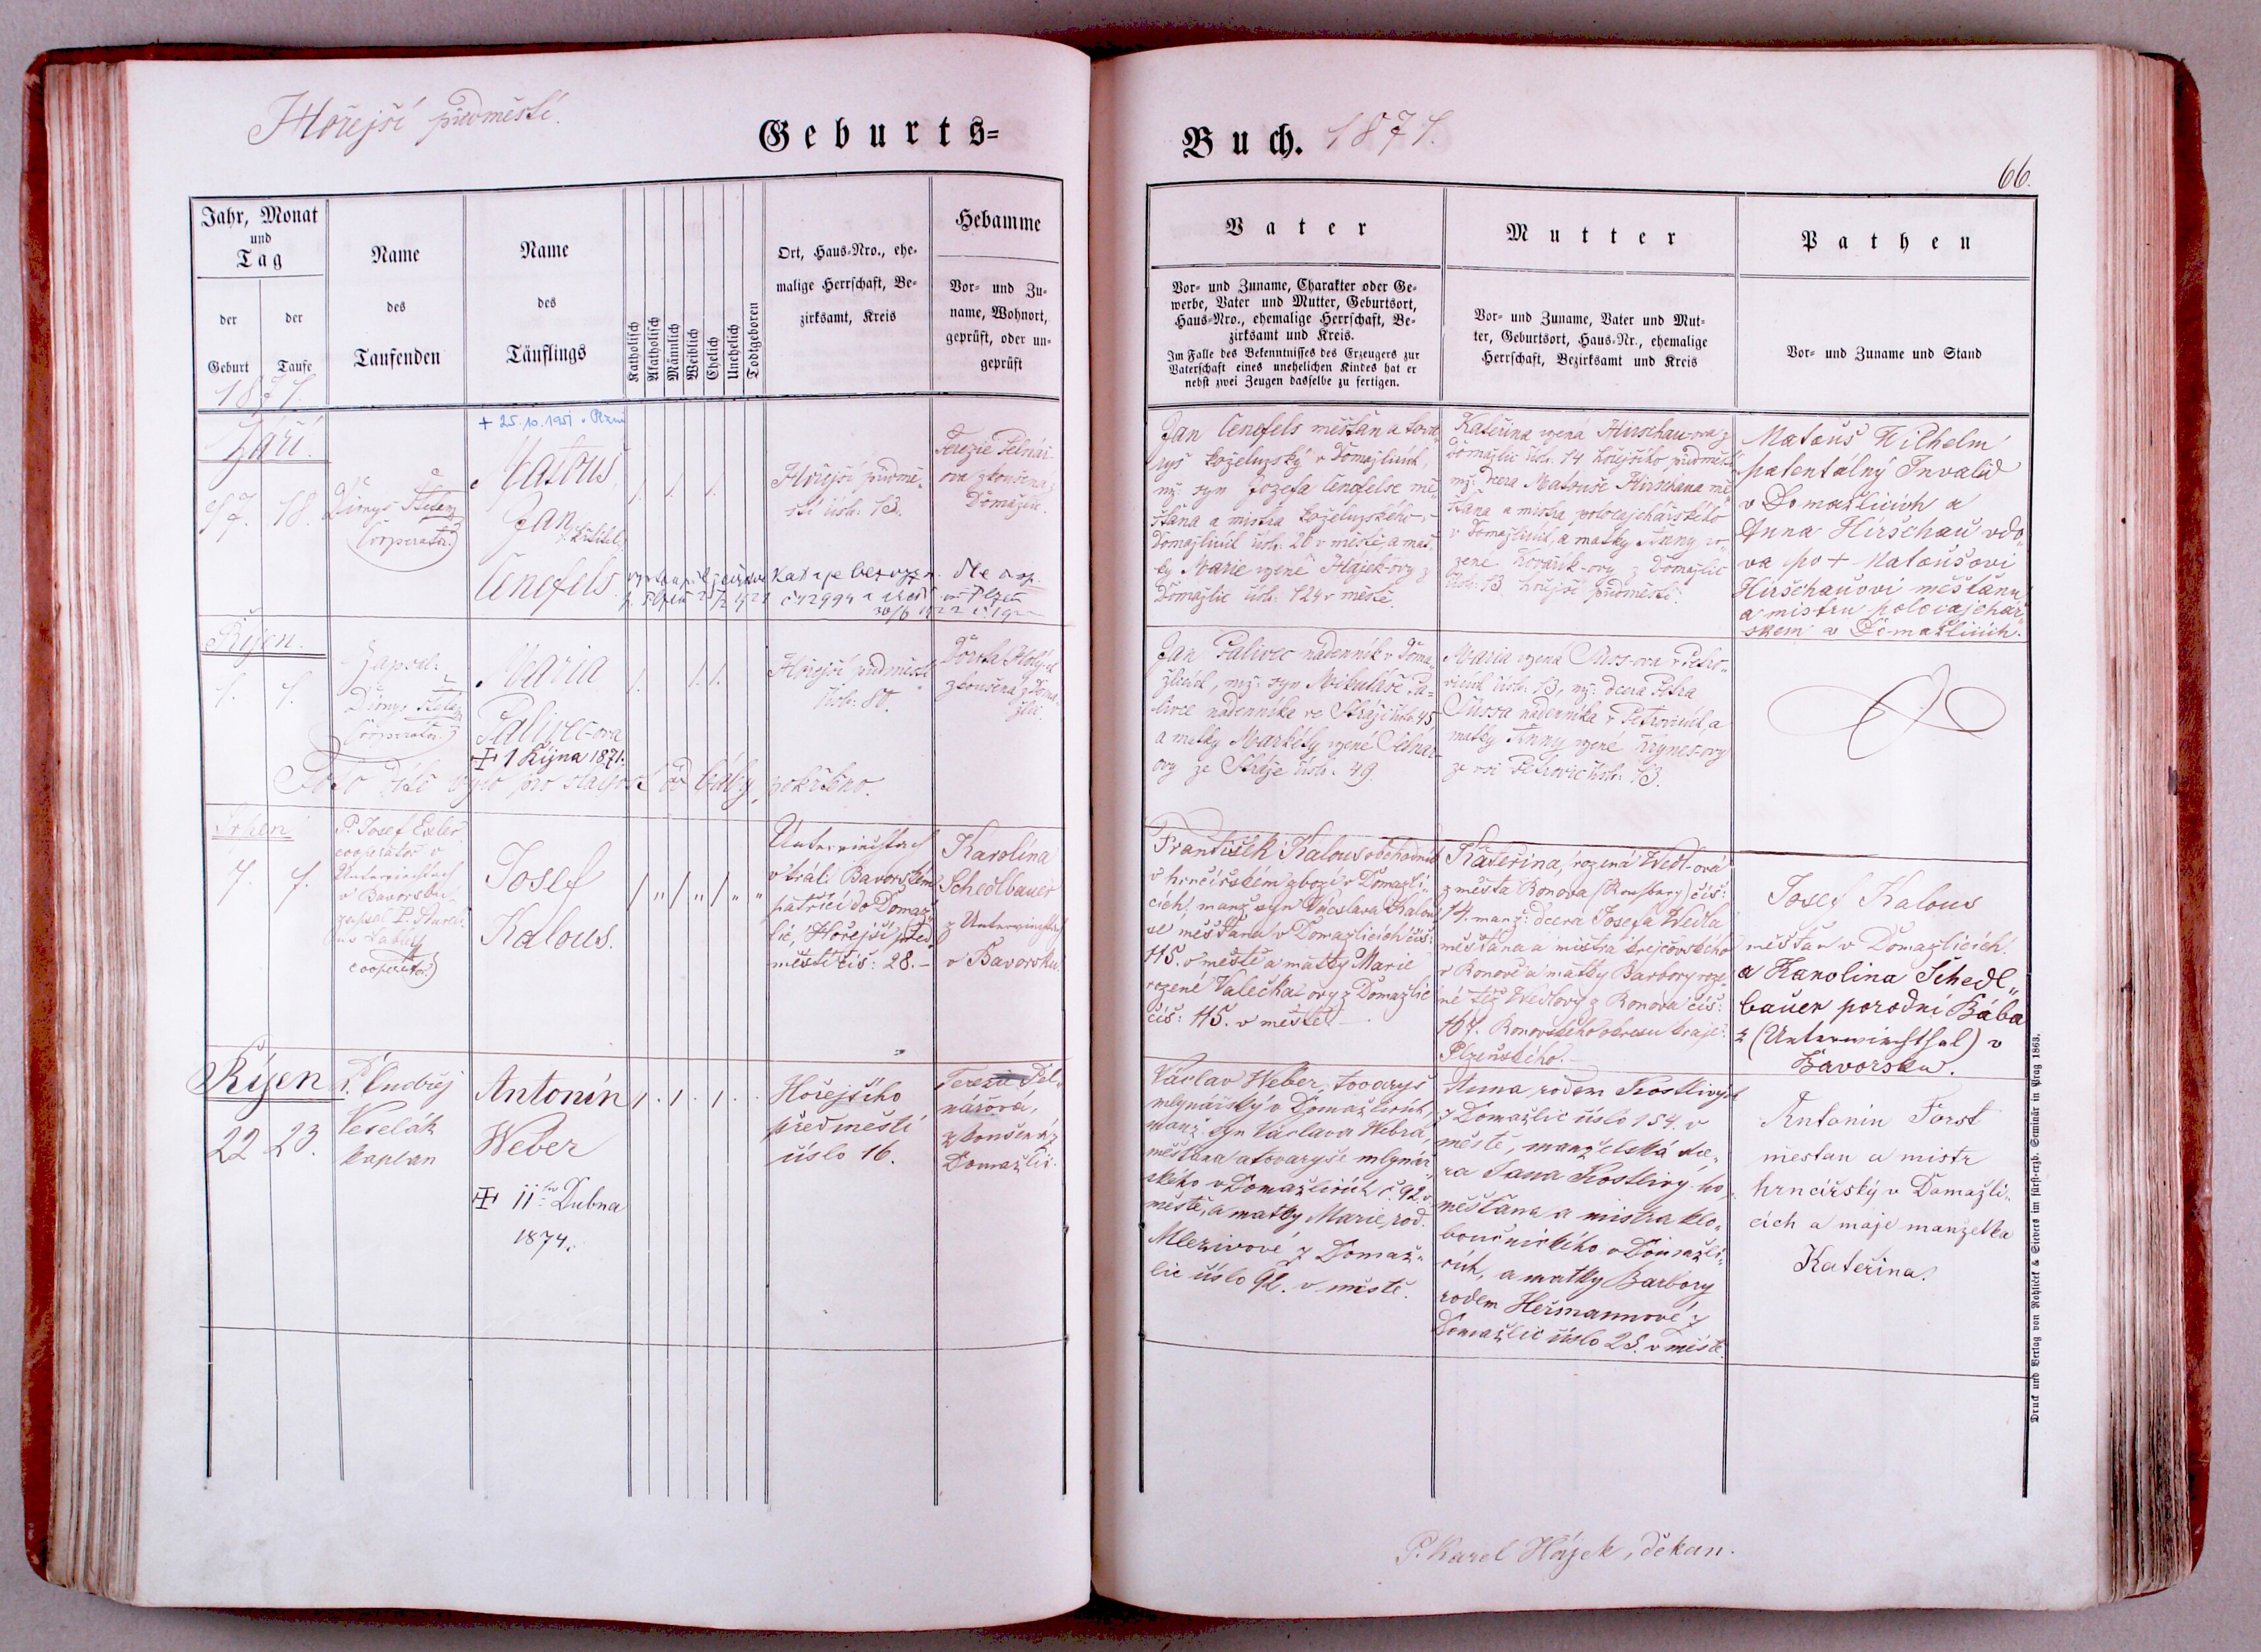 Hořejší předměstí.
Geburts=
Buch. 1871.
66.
Jahr, Monat
und
Tag
der
Geburt
der
Taufe
Name
des
Taufenden
Name
des
Täuflings
Katholisch
Akatholisch
Männlich
Weiblich
Ehelich
Unehelich
Todtgeboren
Ort, Haus=Nro., ehe=
malige Herrschaft, Be=
zirksamt, Kreis
Hebamme
Vor= und Zu=
name, Wohnort,
geprüft, oder un=
geprüft
Vater
Vor= und Zuname, Charakter oder Ge=
werbe, Vater und Mutter, Geburtsort,
Haus=Nro., ehemalige Herrschaft, Be=
zirksamt und Kreis.
Im Falle des Bekenntnisses des Erzeugers zur
Vaterschaft eines unehelichen Kindes hat er
nebst zwei Zeugen dasselbe zu fertigen.
Mutter
Vor= und Zuname, Vater und Mut=
ter, Geburtsort, Haus=Nr., ehemalige
Herrschaft, Bezirksamt und Kreis
Pathen
Vor= und Zuname und Stand
1871.
Září.
17. 18.
Dionys
Cooperator
+ 25. 10. 1951 v Plzni
Matouš
Jan
Cenefels
Hořejší předmě-
stí čisl: 13.
Terezie Pelnář-
ova zkoušena z
Domažlic.
Jan Cenefels měšťan a tova-
ryš koželuzský v Domažlicích,
mž: syn Jozefa Cenefelse mě-
šťana a mistra koželuzského v
Domažlicích čisl: 20 v městě, a mat-
ky Marie rozené Hájek-ovy z
Domažlic čisl: 124 v městě.
Kateřina rozená Hirschau-ova z
Domažlic čisl: 14 hořejšího předměstí
mž: dcera Matouše Hirschaua mě-
šťana a mistra
v Domažlicích, a matky Anny ro-
zené Kovařík-ovy z Domažlic
čisl: 13 hořejší předměstí.
Matouš Wilhelm
patentálný Invalid
v Domažlicích a
Anna Hirschau vdo-
va po + Matoušovi
Hirschauovi měšťanu
a mistru
v Domažlicích.
Říjen.
1. 1.
Zapsal:
Dionys
Cooperator
Maria
Palivec-ova
+ 1 Října 1871.
Hořejší předměstí
čisl: 80.
Dorota
zkoušena z Doma-
žlic.
Toto dítě bylo pro slabost od báby pokřtěno.
Jan Palivec nádenník v Doma-
žlicích, mž: syn Mikuláše Pa-
livce nádenníka ve Stráži čisl: 45
a matky Markéty rozené Pelnář-
ovy ze Stráže čisl: 49.
Maria rozená Süss-ova v Petro-
vicích čisl: 13, mž: dcera Petra
Süssa nádenníka v Petrovicích, a
matky Anny rozené
ze vsi Petrovic čisl: 13.
Srpen
7. 7.
P. Josef Exler
cooperator v
v Bavorsku
zapsal P.
cooperator
Josef
Kalous.
v král: Bavorském
patřící do Domaž-
lic, Hořejší před-
městí čis: 28.
Karolina
Schedlbauer
z
v Bavorsku
František Kalous obchodník
v hrnčířském zboží v Domažli-
cích, manž: syn Václava Kalou-
se, měšťana v Domažlicích čis:
115. v městě a matky Marie
rozené Valečka-ovy z Domažlic
čis: 115. v městě.
Kateřina, rozená Wedl-ová
z města Ronova (Ronsberg) čis:
14. manž: dcera Josefa Wedla
měšťana a mistra krejčovského
v Ronově a matky Barbory roze-
né též Wedlovy z Ronova čis:
167. Ronovského okresu kraje
Plzeňského.
Josef Kalous
měšťan v Domažlicích.
a Karolina Schedl-
bauer porodní Bába
z (Unterwirchthal) v
Bavorsku.
Říjen
22 23.
P. Ondřej
Veselák
kaplan
Antonín
Weber
+ 11. Dubna
1874.
Hořejšího
předměstí
číslo 16.
Terezie Pel-
nářová,
zkoušená z
Domažlic.
Václav Weber, tovaryš
mlynářský v Domažlicích,
manž. syn Václava Webra,
měšťana a tovaryše mlynář-
ského v Domažlicích č. 92. v
městě, a matky Marie, rod.
Mlezivové z Domaž-
lic číslo 92. v městě.
Anna rodem Kostlivých
z Domažlic číslo 154. v
městě, manželská dce-
ra Jana Kostlivý-ho
měšťana a mistra klo-
boučnického v Domažli-
cích, a matky Barbory
rodem Heřmannové z
Domažlic číslo 25. v městě.
Antonín Forst
měšťan a mistr
hrnčířský v Domažli-
cích a maje manželka
Kateřina.
P. Karel Hájek, děkan.
Druck und Verlag von Rohliček & Sievers im fürst=erzb. Seminär in Prag 1863.